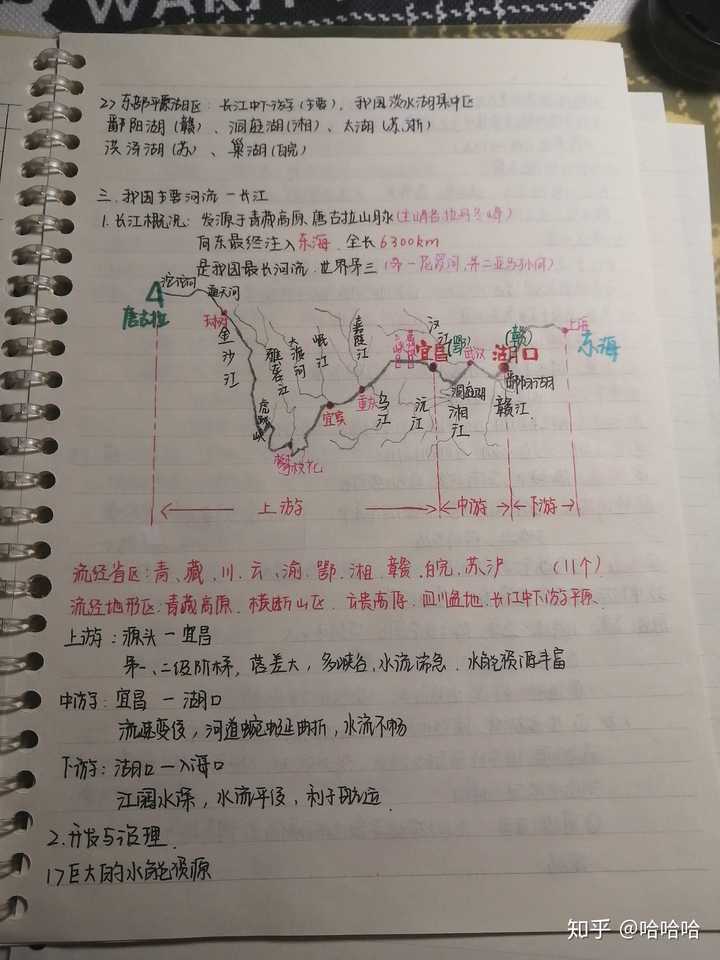 WAKH
2> 东部平原湖区：长江中下游(主要)，我国淡水湖集中区
鄱阳湖(赣)、洞庭湖(湘)、太湖(苏、浙)
洪泽湖(苏)、巢湖(皖)
三. 我国主要河流－长江
1. 长江概况：发源于青藏高原.唐古拉山脉(主峰各拉丹冬峰)
向东最终注入东海. 全长6300km
是我国最长河流.世界第三(第一尼罗河,第二亚马孙河)
沱沱河
通天河
唐古拉
玉树
金沙江
虎跳峡
攀枝花
雅砻江
大渡河
岷江
宜宾
嘉陵江
重庆
乌江
三峡
宜昌
汉江
(鄂)
武汉
沅江
洞庭湖
湘江
湖口
鄱阳湖
赣江
(赣)
上海
东海
上游
中游
下游
流经省区：青、藏、川、云、渝、鄂、湘、赣、皖、苏、沪 (11个)
流经地形区：青藏高原. 横断山区. 云贵高原. 四川盆地. 长江中下游平原.
上游：源头－宜昌
第一、二级阶梯，落差大，多峡谷、水流湍急. 水能资源丰富
中游：宜昌－湖口
流速变缓，河道蜿蜒曲折，水流不畅
下游：湖口－入海口
江阔水深，水流平缓，利于航运.
2.开发与治理.
1>巨大的水能资源
知乎 @哈哈哈